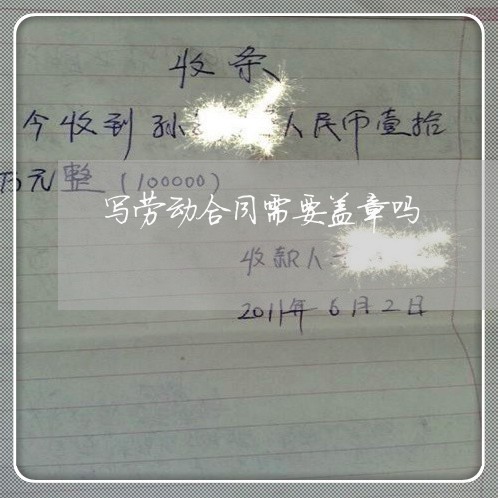 收条
今收到孙 人民币壹拾
万元整(100000)
写劳动合同需要盖章吗
收款人
2011年6月2日